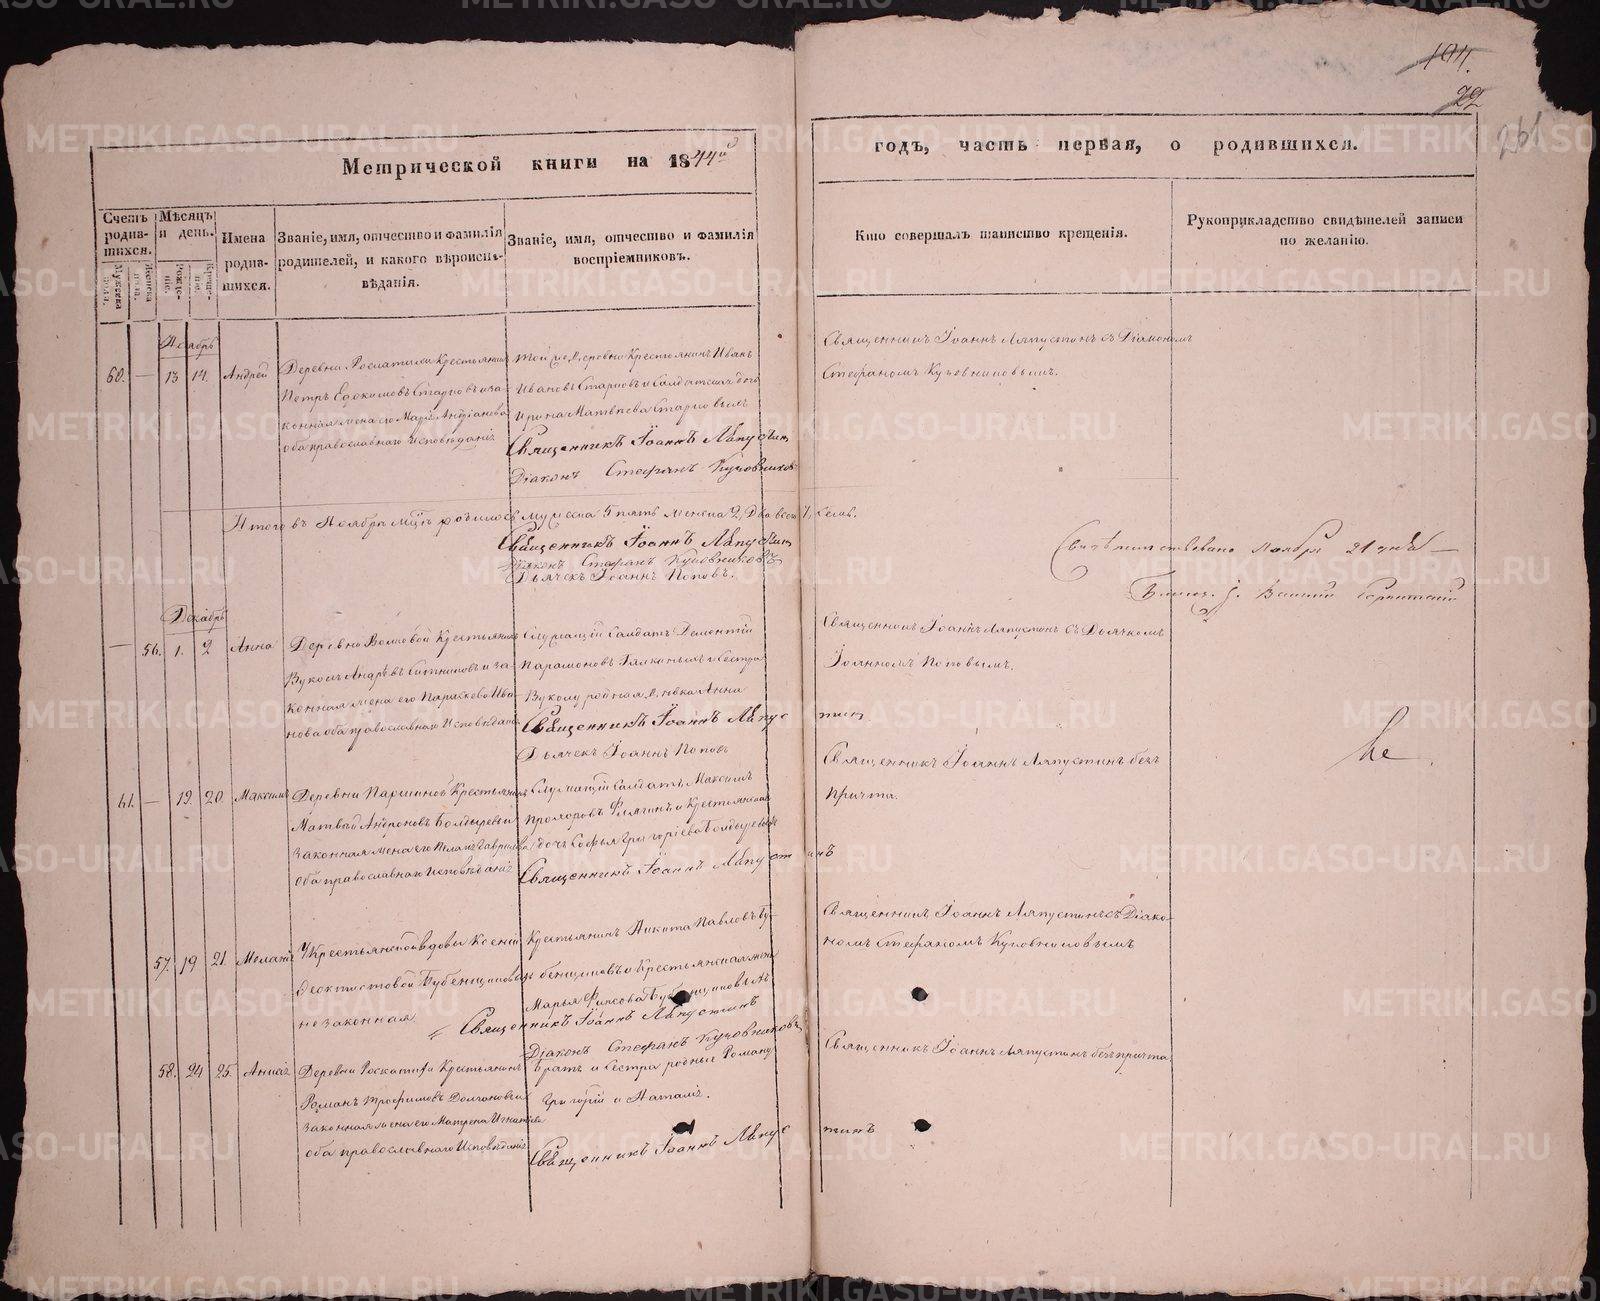 194.
22
261
Метрической книги на 1844й
годъ, часть первая, о родившихся.
Счетъ родив-шихся.
Мужеска пола.
Женска пола.
Мѣсяцъ и день.
Рожде-нія.
Креще-нія.
Имена родив-шихся.
Званіе, имя, отчество и фамилія
родителей, и какого вѣроиспо-
вѣданія.
Званіе, имя, отчество и фамилія
воспріемниковъ.
Кто совершалъ таинство крещенія.
Рукоприкладство свидѣтелей записи
по желанію.
Ноябрь
60. — 13 14. Андрей
Деревни Роскатихи Крестьянинъ
Петръ Евдокимовъ Старковъ и за-
конная жена его Марья Андріанова
оба православнаго исповѣданія
той же деревни Крестьянинъ Иванъ
Ивановъ Старковъ и Салдатская дочь
Ирина Матвѣева Старковыхъ
Священникъ Іоаннъ Ляпустин
Діаконъ Стефанъ Куковниковъ
Священникъ Іоаннъ Ляпустинъ съ Діакономъ
Стефаномъ Куковниковымъ.
Итого въ Ноябрѣ мцѣ родилось мужеска 5 пять женска 2, два всего 7, семь.
Священникъ Іоаннъ Ляпустин
Діаконъ Стефанъ Куковниковъ
Дьячекъ Іоаннъ Поповъ.
Свидѣтельствовано Ноября 21 дня —
Декабрь
— 56. 1. 2 Анна
Деревни Волковой Крестьянинъ
Вуколъ Андрѣевъ Ситниковъ и за-
конная жена его Парасковья Ива-
нова оба православнаго Исповѣданія
Служащій Салдатъ Дементій
Парамоновъ Галкинъ и Сестра
Вуколу родная дѣвка Анна
Священникъ Іоаннъ Ляпус тин.
Дьячекъ Іоаннъ Поповъ
Священникъ Іоаннъ Ляпустинъ съ Дьячкомъ
Іоанномъ Поповымъ.
61. — 19. 20. Максимъ
Деревни Паршиной Крестьянинъ
Матвѣй Андроновъ Болдыревъ и
законная жена его Пелагія Гаврилова
оба православнаго исповѣданія
Служащій Салдатъ Максимъ
Прохоровъ и Крестьянская
дочь Софья Григоріева Болдырева
Священникъ Іоаннъ Ляпуст инъ
Священникъ Іоаннъ Ляпустинъ безъ
причта.
57. 19 21. Меланія
У Крестьянской вдовы Ксеніи
Феоктистовой Бубенщиковой
незаконная
Крестьянинъ Никита Павловъ Бу-
бенщиковъ и Крестьянская жена
Марья Фирсова Бубенщиковыхъ
Священникъ Іоаннъ Ляпустинъ
Діаконъ Стефанъ Куковниковъ
Священникъ Іоаннъ Ляпустинъ съ Діако-
номъ Стефаномъ Куковниковымъ
58. 24 25. Анисія
Деревни Роскатихи Крестьянинъ
Романъ Трофимовъ Долгановъ и
законная жена его Матрена Игнатьева
оба православнаго Исповѣданія
Братъ и Сестра родные Роману
Григорій и Наталія.
Священникъ Іоаннъ Ляпус тинъ
Священникъ Іоаннъ Ляпустинъ безъ причта